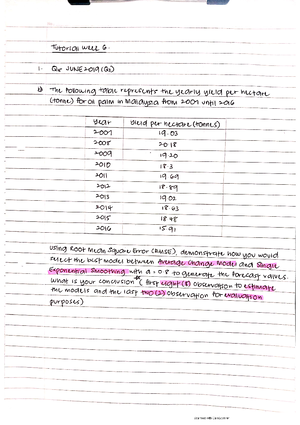 Tutorial week 6.
1. Que JUNE 2019 (Q2)
b) The following table represents the yearly yield per hectare
(tonne) for oil palm in Malaysia from 2007 until 2016
Year yield per hectare (tonnes)
2007 19.03
2008 20.18
2009 19.20
2010 18.3
2011 19.69
2012 18.89
2013 19.02
2014 18.63
2015 18.48
2016 15.91
Using Root Mean Square Error (RMSE), demonstrate how you would
select the best model between Average Change Model and Single
Exponential Smoothing with α = 0.8 to generate the forecast values.
What is your conclusion? (first eight (8) observation to estimate
the models and the last two (2) observation for evaluation
purposes)